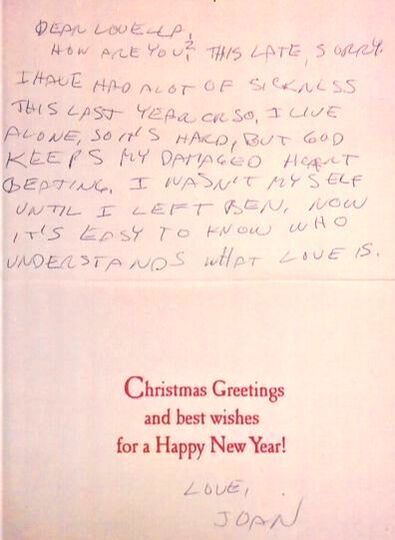 DEAR LOUELLA,
HOW ARE YOU? THIS LATE, SORRY.
I HAVE HAD ALOT OF SICKNESS
THIS LAST YEAR OR SO, I LIVE
ALONE, SO IT'S HARD, BUT GOD
KEEPS MY DAMAGED HEART
BEATING. I WASN'T MYSELF
UNTIL I LEFT BEN. NOW
IT'S EASY TO KNOW WHO
UNDERSTANDS WHAT LOVE IS.
Christmas Greetings
and best wishes
for a Happy New Year!
LOVE,
JOAN